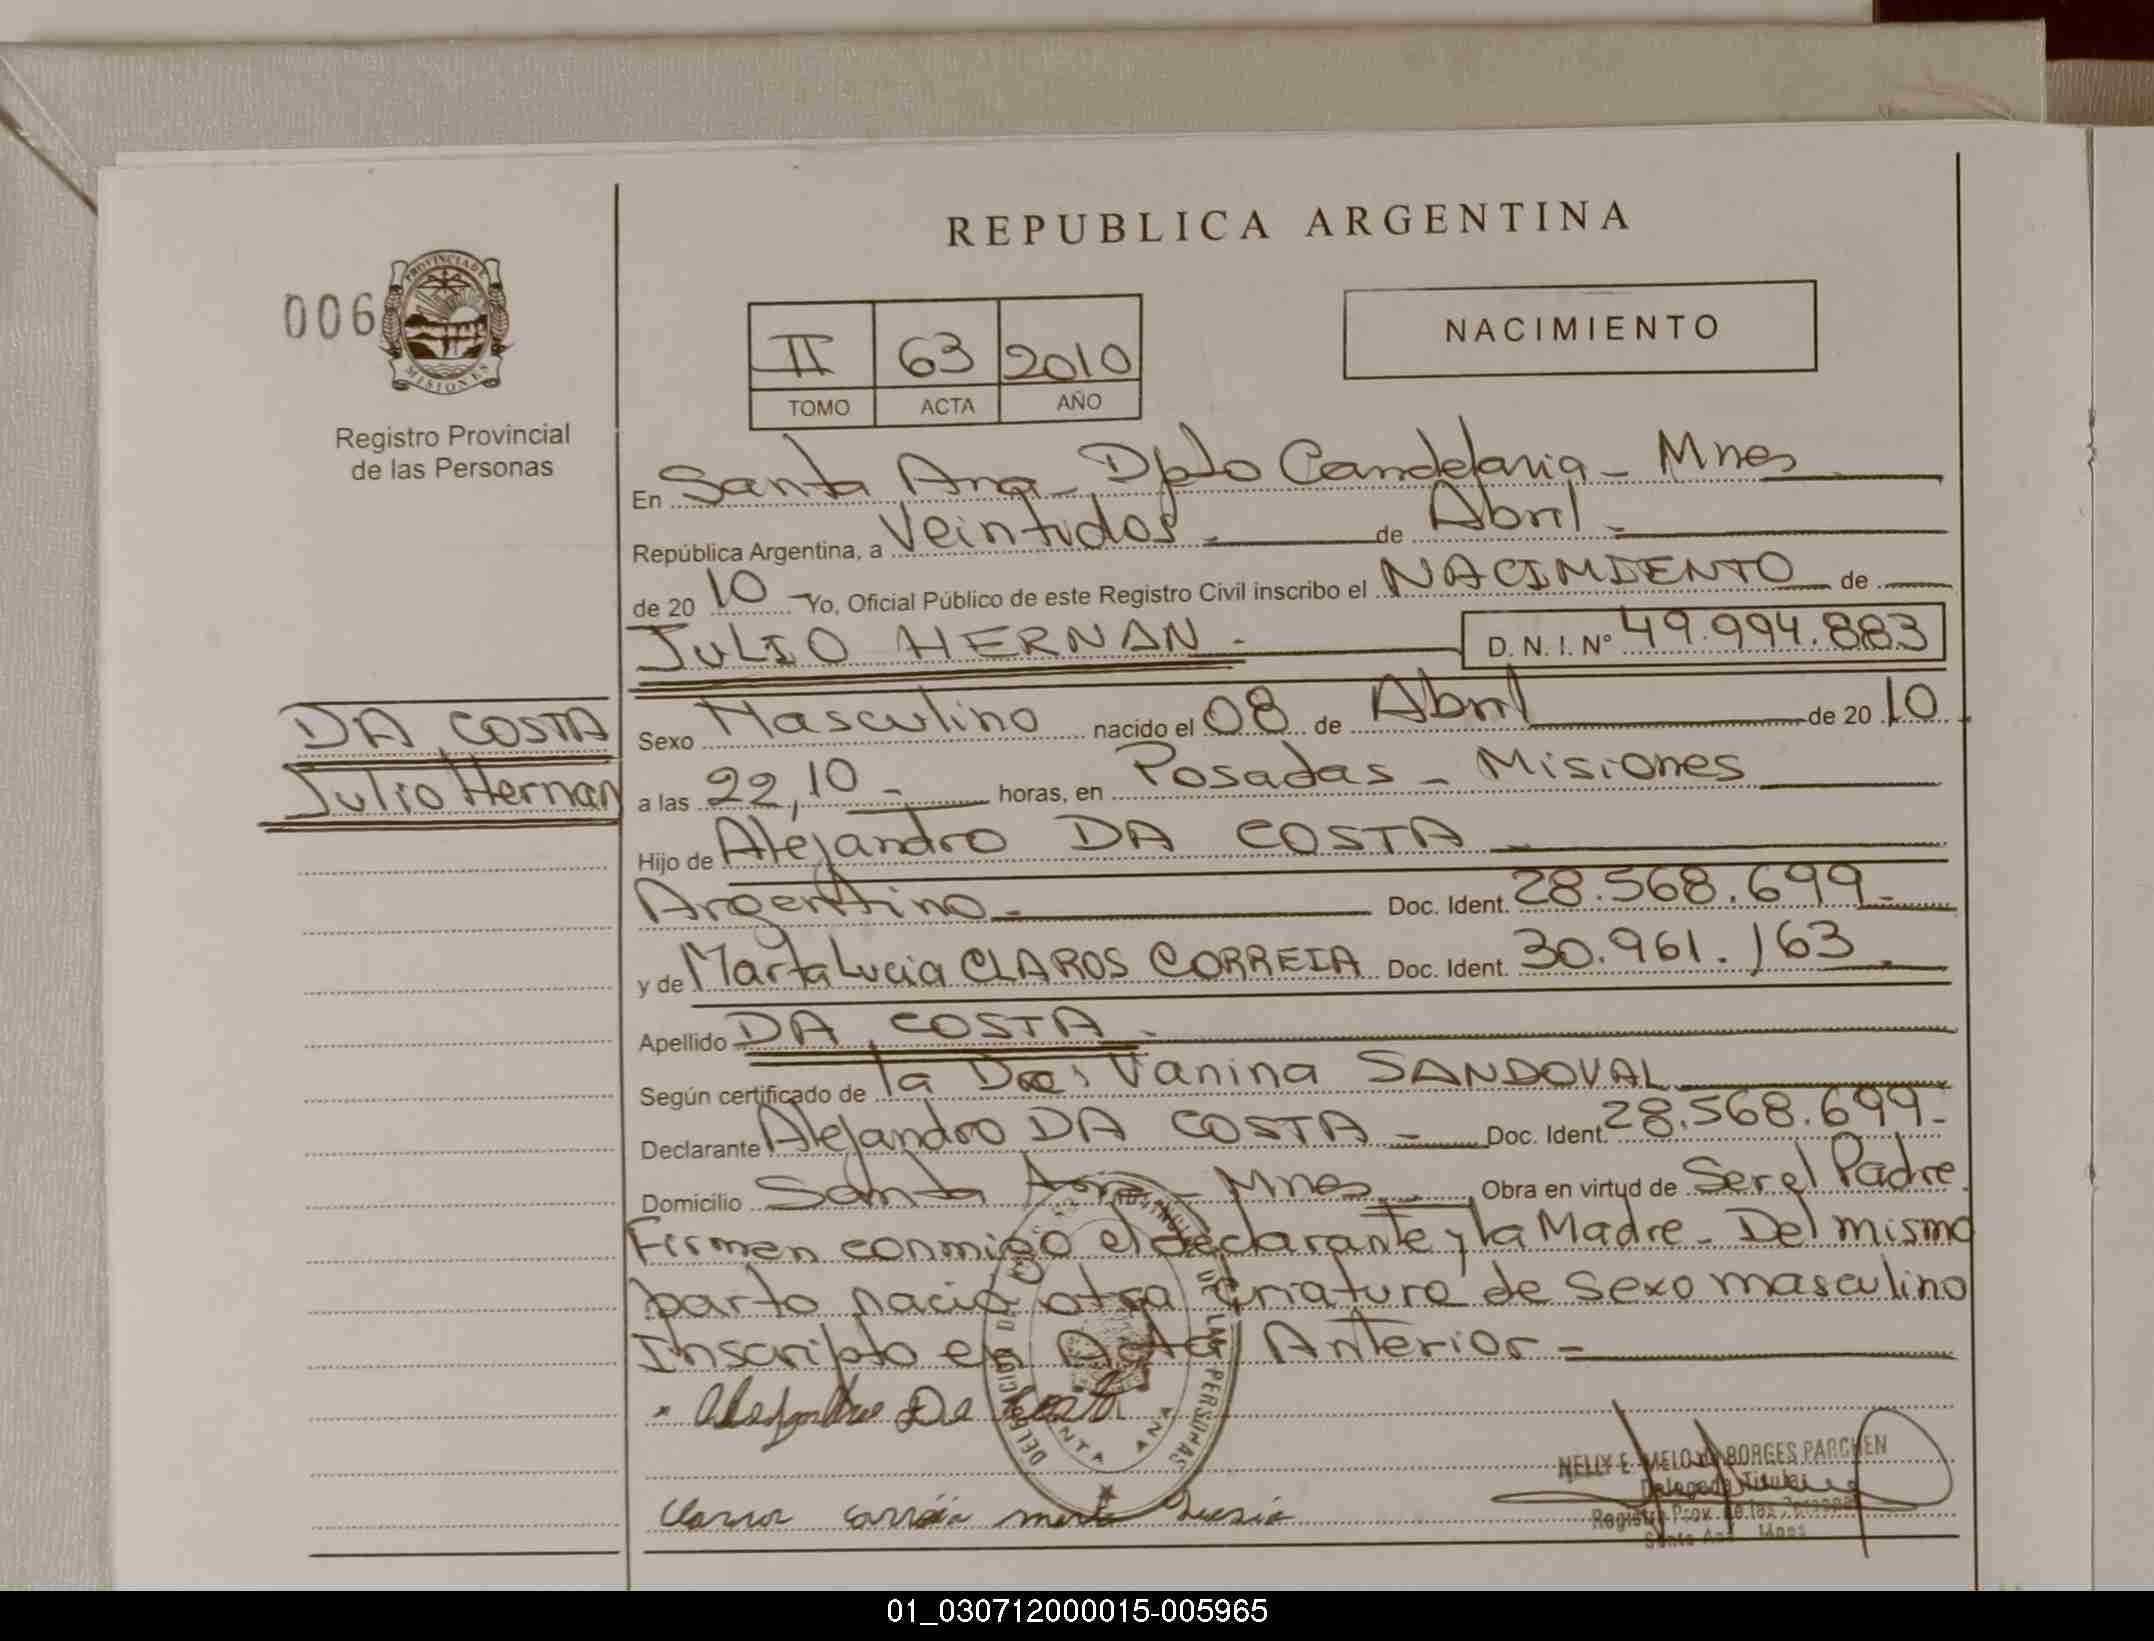 REPUBLICA ARGENTINA
006
PROVINCIA DE
MISIONES
Registro Provincial
de las Personas
II 63 2010
TOMO ACTA AÑO
NACIMIENTO
En Santa Ana - Dpto Candelaria - Mnes
República Argentina, a Veintidos - de Abril -
de 20 10 Yo, Oficial Público de este Registro Civil inscribo el NACIMIENTO de
JULIO HERNAN - D. N. I. Nº 49.994.883
DA COSTA
Julio Hernan
Sexo Masculino nacido el 08 de Abril de 20 10
a las 22,10 - horas, en Posadas - Misiones
Hijo de Alejandro DA COSTA
Argentino - Doc. Ident. 28.568.699 -
y de Marta Lucia CLAROS CORREIA Doc. Ident. 30.961.163
Apellido DA COSTA -
Según certificado de la Vanina SANDOVAL
Declarante Alejandro DA COSTA - Doc. Ident. 28.568.699-
Domicilio Santa Ana - Mnes Obra en virtud de Ser el Padre.
Firman conmigo el declarante y la Madre - Del mismo
parto nacio otra criatura de sexo masculino
Inscripto en Acta Anterior -
Alejandro Da Costa
NELLY E. MELO BORGES PARCHEN
Delegada Titular
Registro Prov. de las Personas
Santa Ana - Mnes
Claros Correia Marta Lucia
01_030712000015-005965